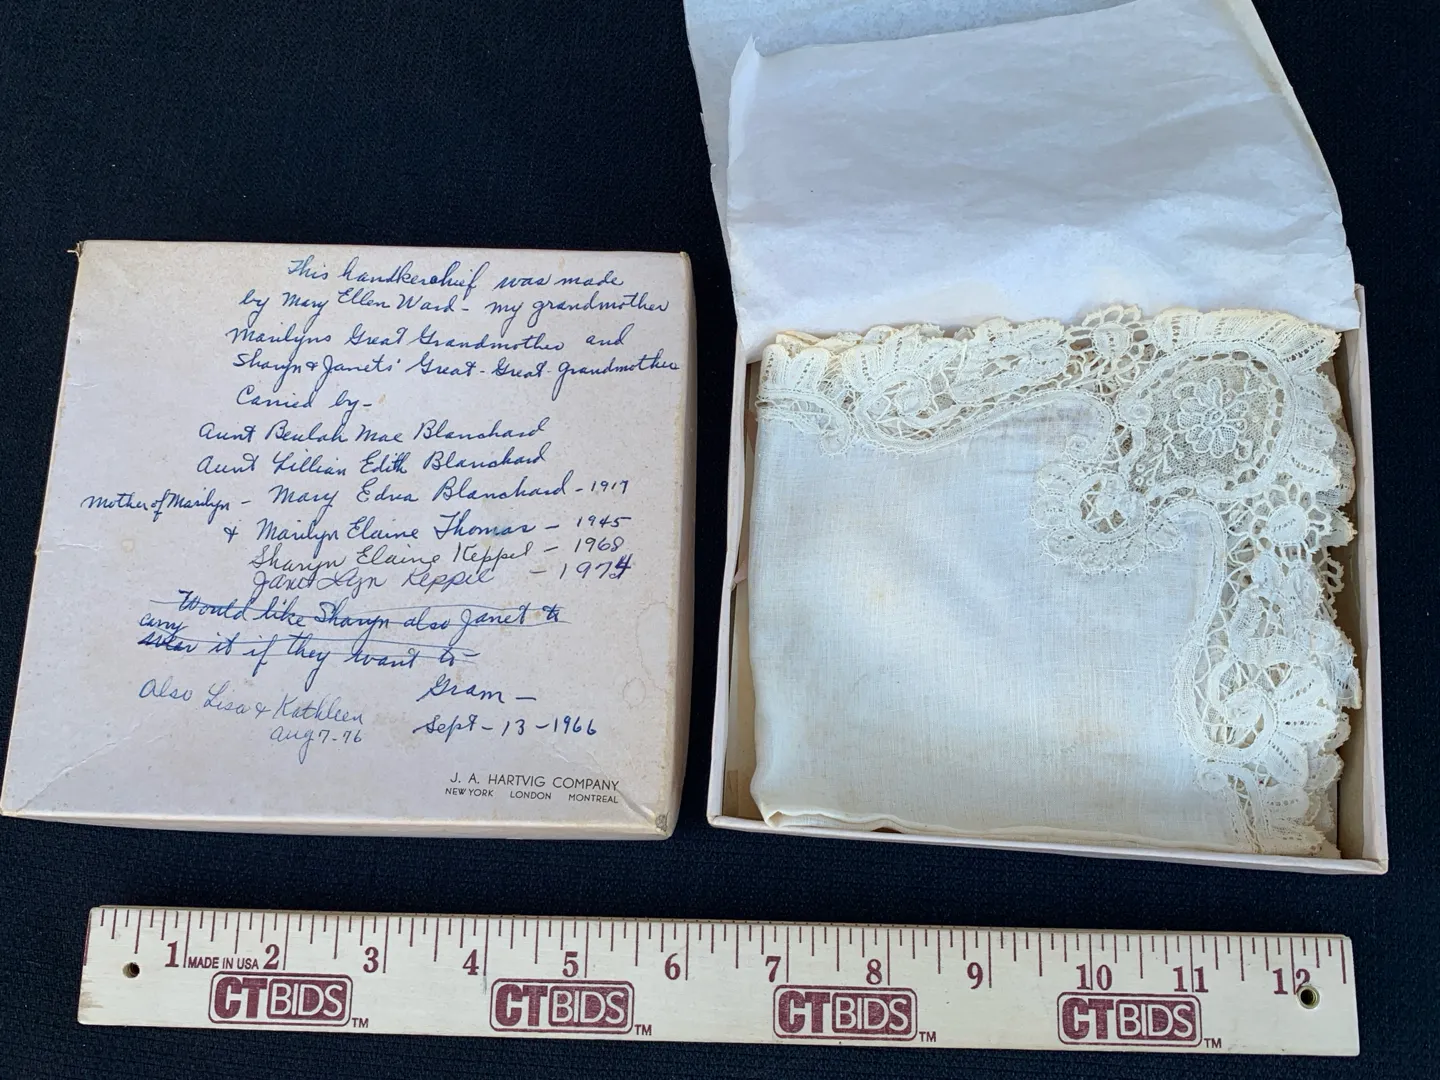 This handkerchief was made
by Mary Ellen Ward - my grandmother
Marilyns Great Grandmother and
Sharyn & Janets' Great-Great-grandmother
Carried by-
Aunt Beulah Mae Blanchard
Aunt Lillian Edith Blanchard
Mother of Marilyn - Mary Edna Blanchard - 1917
& Marilyn Elaine Thomas - 1945
Sharyn Elaine Keppel - 1968
Janet Lyn Keppel - 1974
Would like Sharyn also Janet to
carry
wear it if they want to
Gram -
Also Lisa & Kathleen
Sept - 13 - 1966
Aug 7-76
J. A. HARTVIG COMPANY
NEW YORK LONDON MONTREAL
1 MADE IN USA 2 3 4 5 6 7 8 9 10 11 12
CTBIDS™ CTBIDS™ CTBIDS™ CTBIDS™